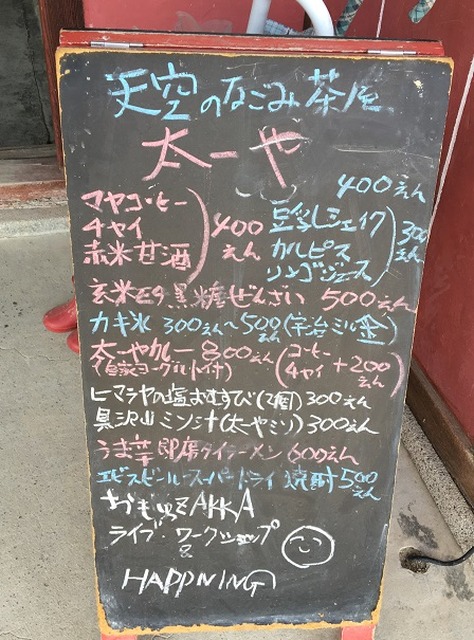 天空のなごみ茶屋
太一や
400えん
マヤコーヒー
チャイ
赤米甘酒
400えん
豆乳シェイク
カルピス
リンゴジュース
300えん
玄米モチ黒糖ぜんざい 500えん
カキ氷 300えん〜500えん(宇治ミルク金)
太一やカレー 800えん (コーヒー チャイ +200)
(自家ヨーグルト付)
ヒマラヤの塩おむすび(2個)300えん
具沢山ミソ汁(太一やミソ)300えん
うま辛 即席タイラーメン 600えん
エビスビール スーパードライ 焼酎 500えん
ZAKKA
ライブ・ワークショップ
&
HAPPNING